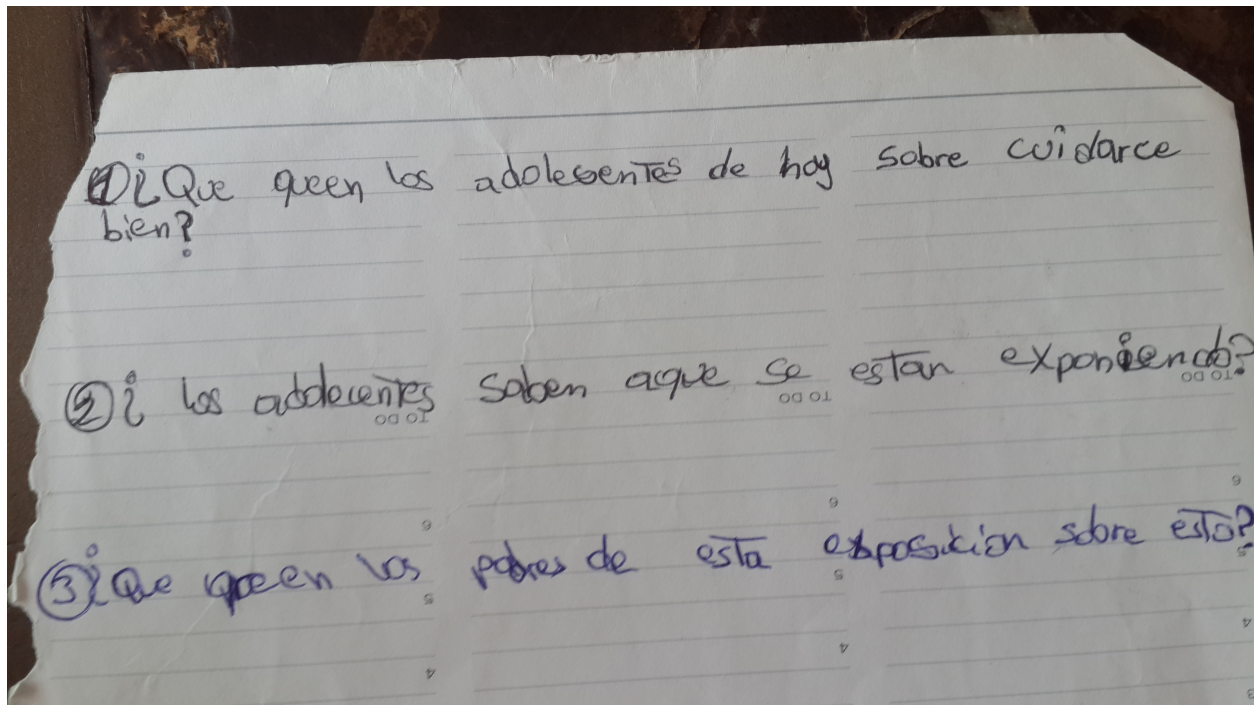 ① ¿Que queen los adolesentes de hoy sobre cuidarce
bien?
② ¿ los adolecentes saben aque se estan exponiendo?
③ ¿Que queen los padres de esta exposicion sobre esto?